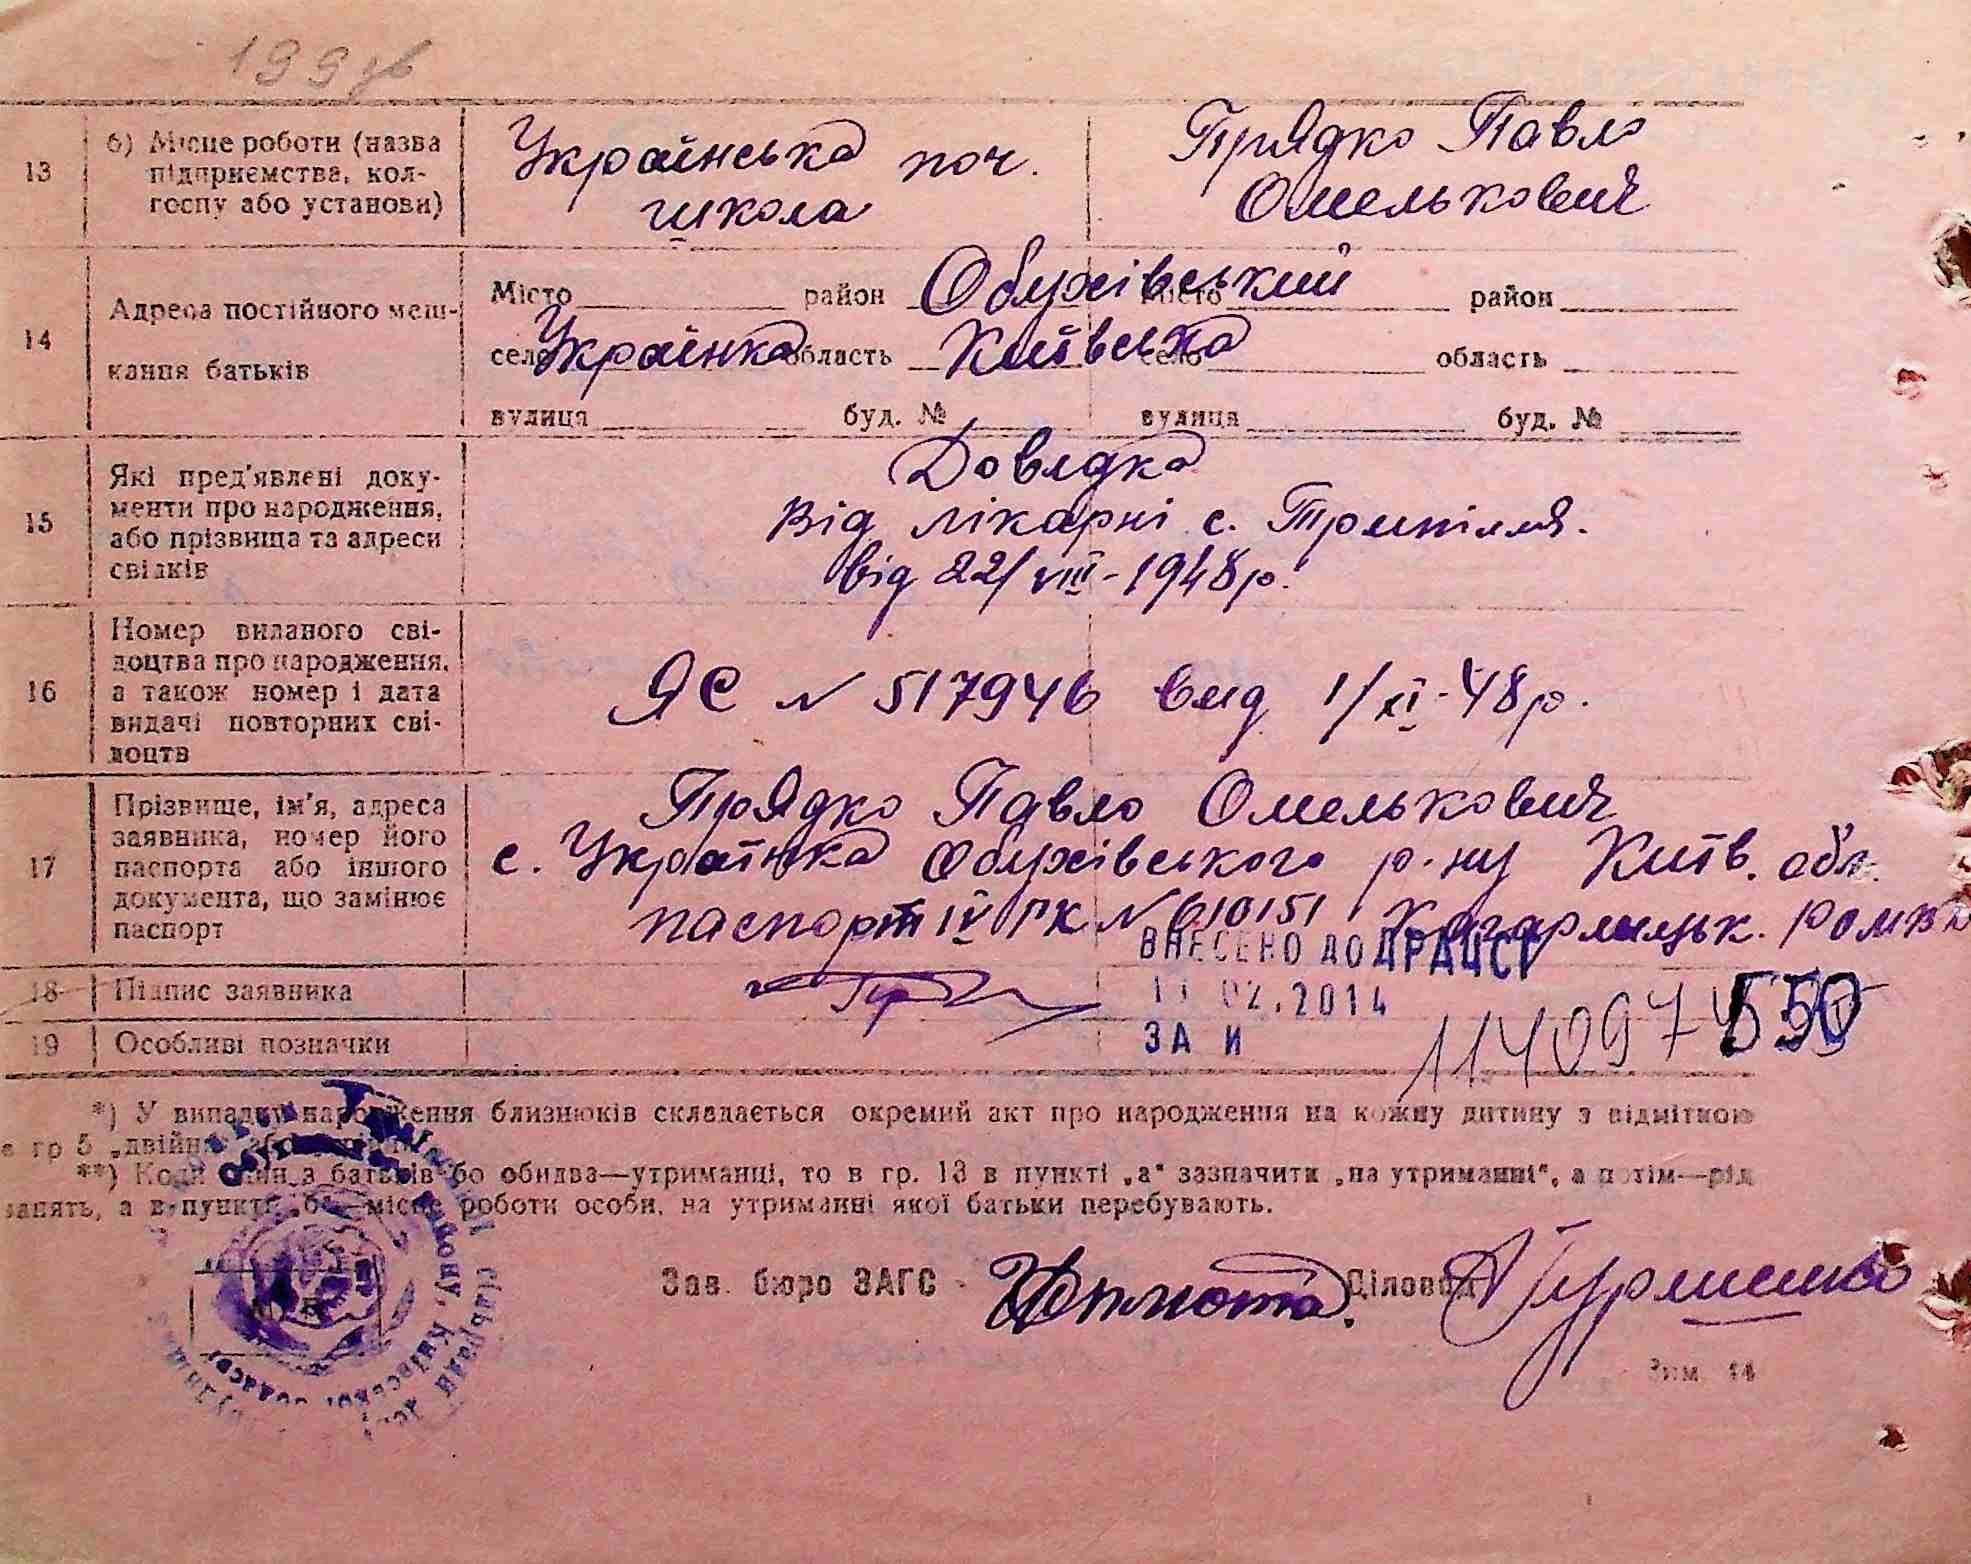 199 зв
13 б) Місце роботи (назва підприємства, колгоспу або установи)
Українська поч. школа
Прядко Павло Омелькович
14 Адреса постійного мешкання батьків
Місто район Обухівський Місто район
село Українка область Київська село область
вулиця буд. № вулиця буд. №
15 Які пред'явлені документи про народження, або прізвища та адреси свідків
Довядка
від лікарні с. Трипілля.
від 22/VIII-1948р.
16 Номер виданого свідоцтва про народження, а також номер і дата видачі повторних свідоцтв
ЯС N 517946 вид 1/XI-48р.
17 Прізвище, ім'я, адреса заявника, номер його паспорта або іншого документа, що замінює паспорт
Прядко Павло Омелькович
с. Українка Обухівського р-ну Київ. обл.
паспорт IV РК N 610151 Кагарлицьк.
ВНЕСЕНО ДО ДРАЦСГ
18 Підпис заявника
02.2014
19 Особливі позначки
ЗА И 1140974 550
*) У випадку народження близнюків складається окремий акт про народження на кожну дитину з відміткою
в гр 5 „двійн або
**) Коли один з батьків бо обидва—утриманці, то в гр. 13 в пункті „а" зазначити „на утриманні", а потім—рід
занять, а в пункті „б"—місце роботи особи, на утриманні якої батьки перебувають.
Зав. бюро ЗАГС Діловод
Зим. 14